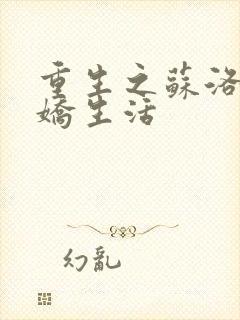 重生之蘇洛
嬌生活
幻亂